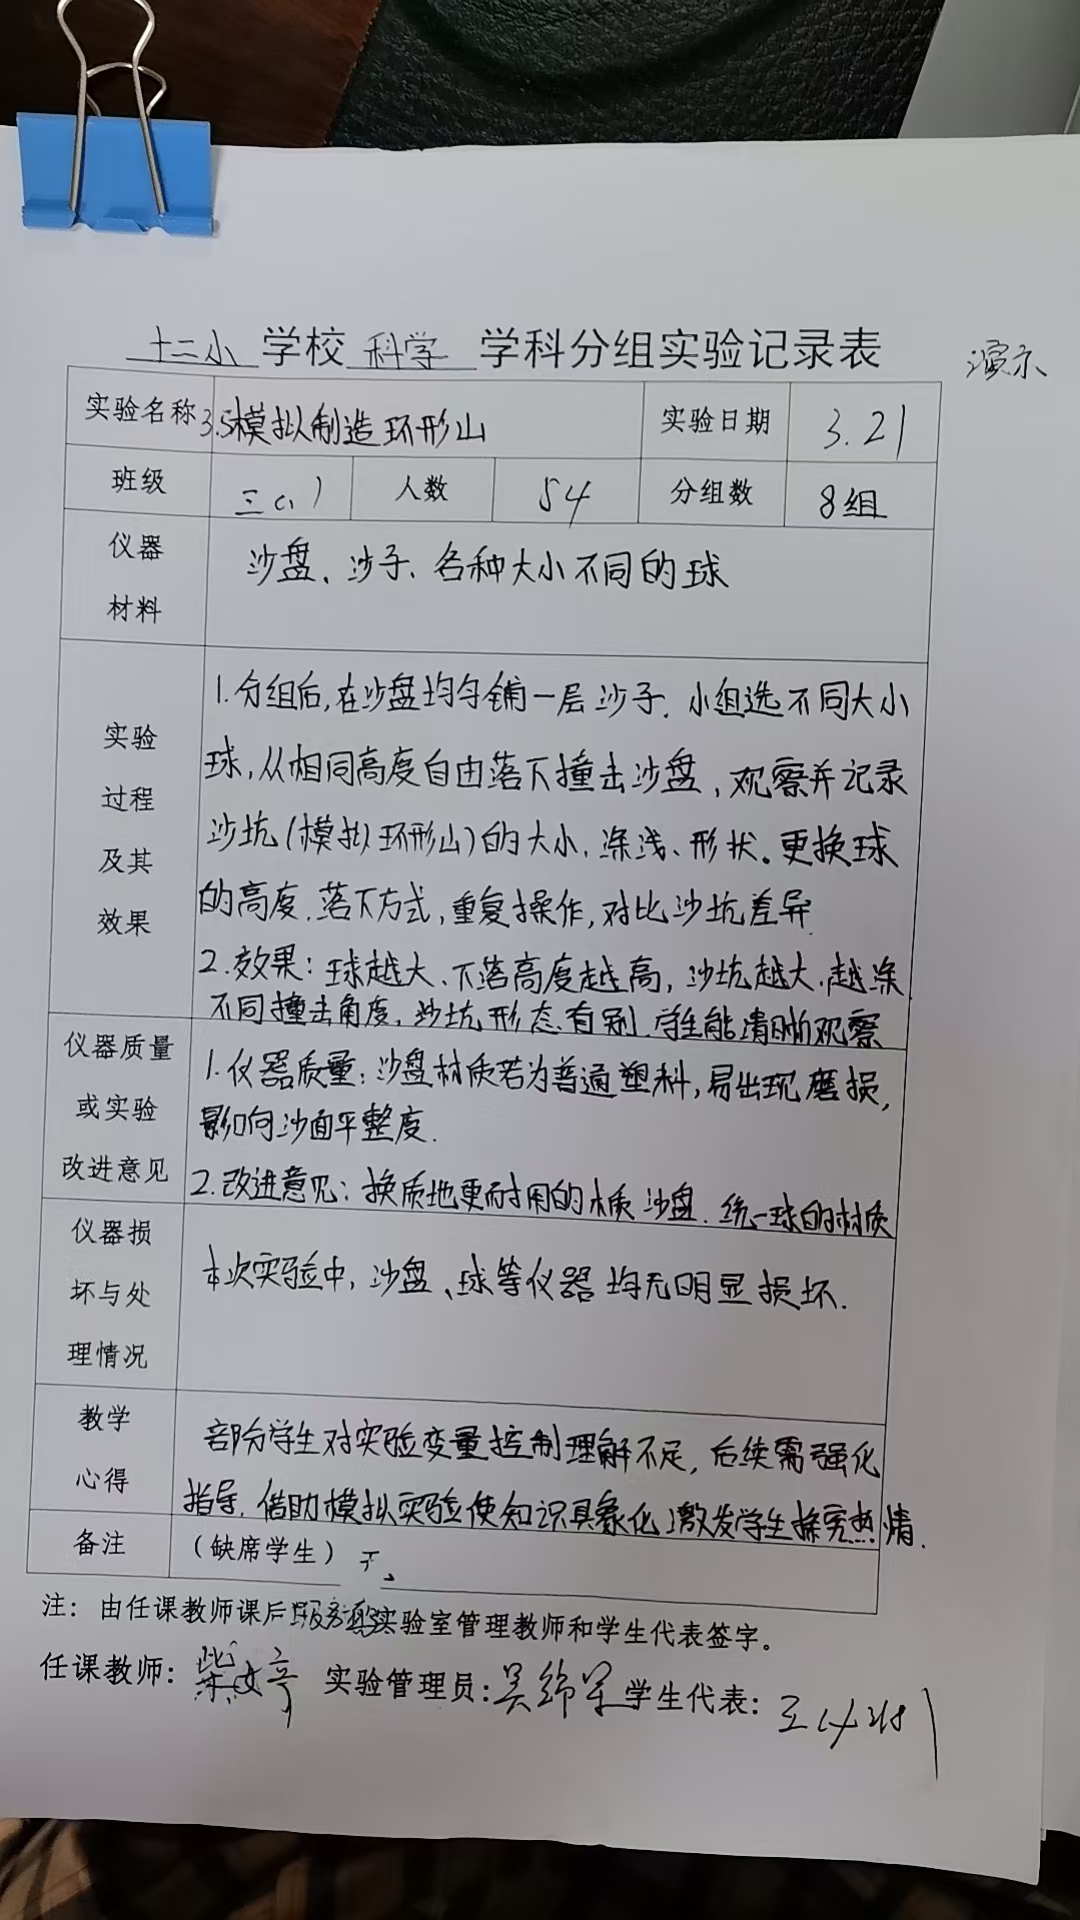 十二小 学校 科学 学科分组实验记录表
演示
实验名称 3.5模拟制造环形山 实验日期 3.21
班级 三(1) 人数 54 分组数 8组
仪器
材料
沙盘、沙子、各种大小不同的球
实验
过程
及其
效果
1.分组后,在沙盘均匀铺一层沙子.小组选不同大小
球,从相同高度自由落下撞击沙盘,观察并记录
沙坑(模拟环形山)的大小、深浅、形状。更换球
的高度.落下方式,重复操作,对比沙坑差异.
2.效果:球越大、下落高度越高,沙坑越大.越深
不同撞击角度,沙坑形态有别.学生能清晰观察
仪器质量
或实验
改进意见
1.仪器质量:沙盘材质若为普通塑料,易出现磨损,
影响沙面平整度.
2.改进意见:换质地更耐用的木质沙盘.统一球的材质
仪器损
坏与处
理情况
本次实验中,沙盘、球等仪器均无明显损坏.
教学
心得
部分学生对实验变量控制理解不足,后续需强化
指导.借助模拟实验使知识具象化,激发学生探究热情.
备注
(缺席学生) 无
注:由任课教师课后 实验室管理教师和学生代表签字。
任课教师: 实验管理员: 学生代表: